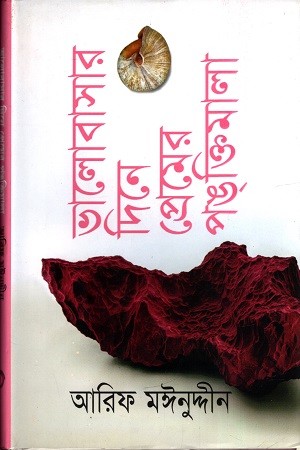 ভালোবাসার
দিনে
প্রেমের
পঙক্তিমালা
আরিফ মঈনুদ্দীন